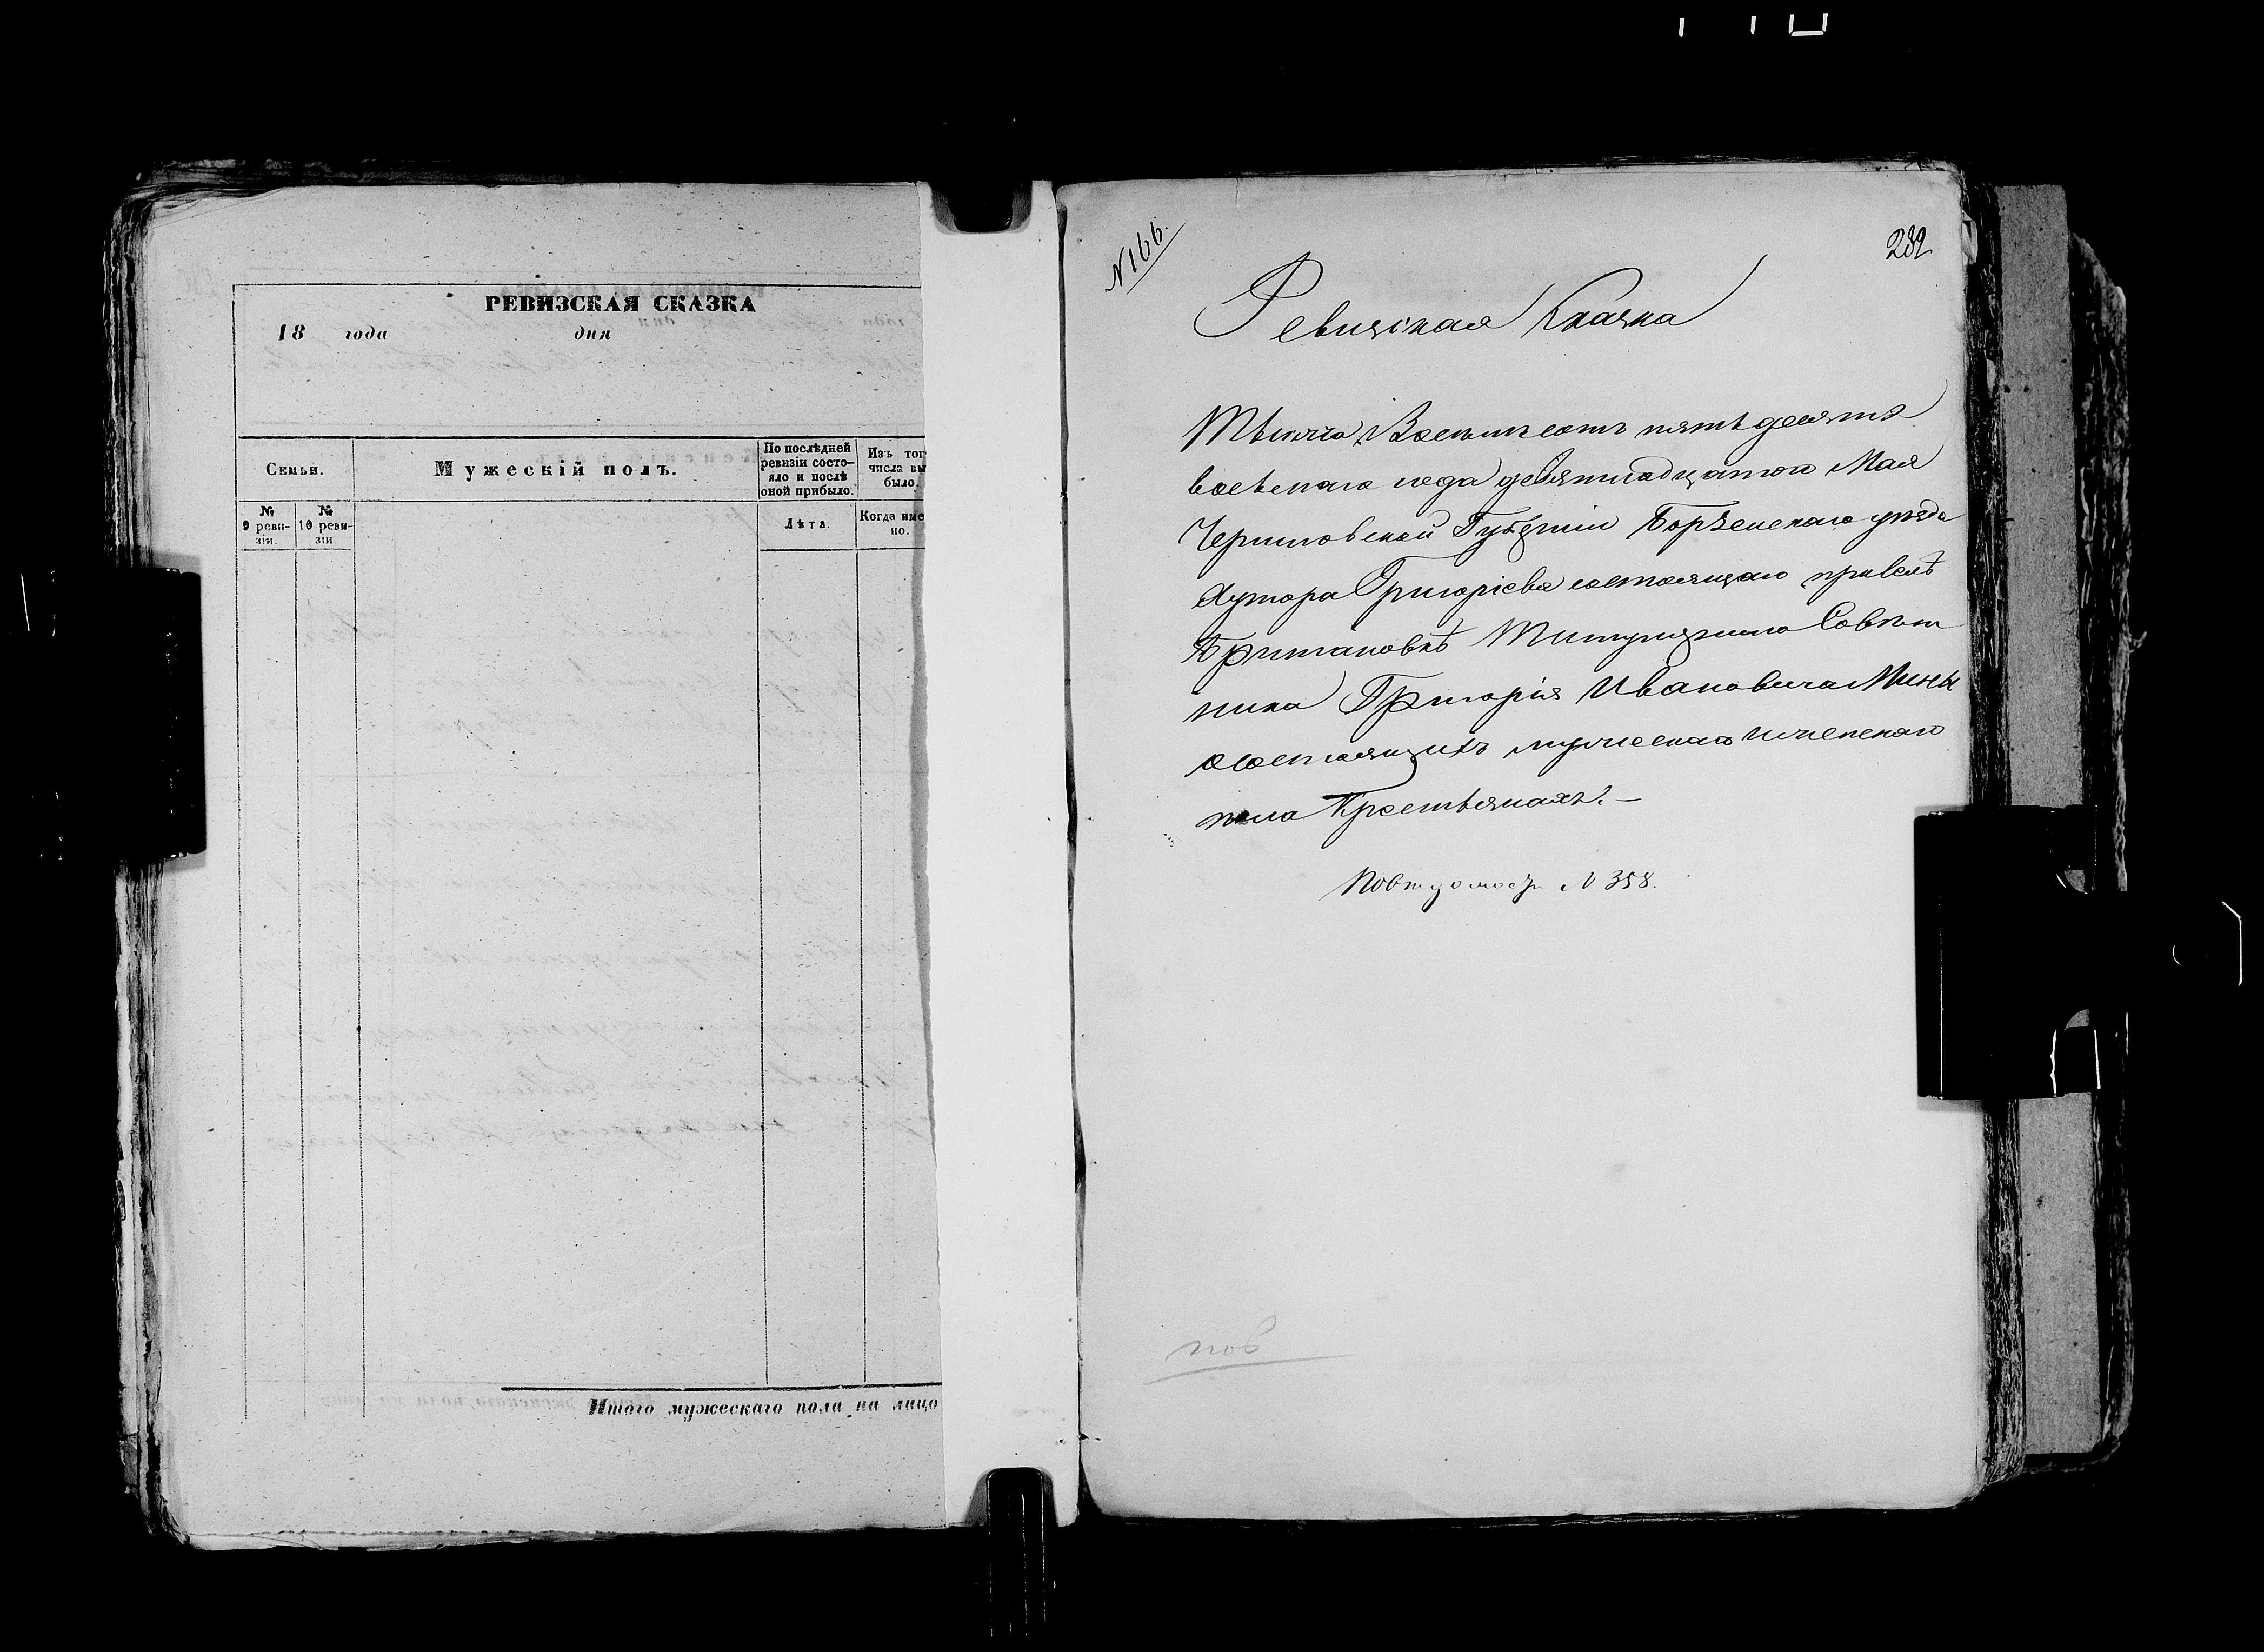 РЕВИЗСКАЯ СКАЗКА
18 года дня
Семьи.
Мужескій полъ.
По послѣдней
ревизіи состо-
яло и послѣ
оной прибыло.
Изъ тог
числа вы
было,
№
9 реви-
зіи.
№
10 реви-
зіи
Лѣта.
Когда име
но.
Итого мужескаго пола на лицо
N 166.
232
Ревизская Сказка
Тысяча Восемьсотъ пятьдесятъ
восьмаго года девятнадцатого Мая
Черниговской Губерніи Борзенскаго уѣзда
Хутора Григорієва состоящаго
Титулярнаго Совѣт
ника Григорія Ивановича Мины
состоящихъ мужеска и женскаго
пола Крестьянахъ. —
N 358.
пов